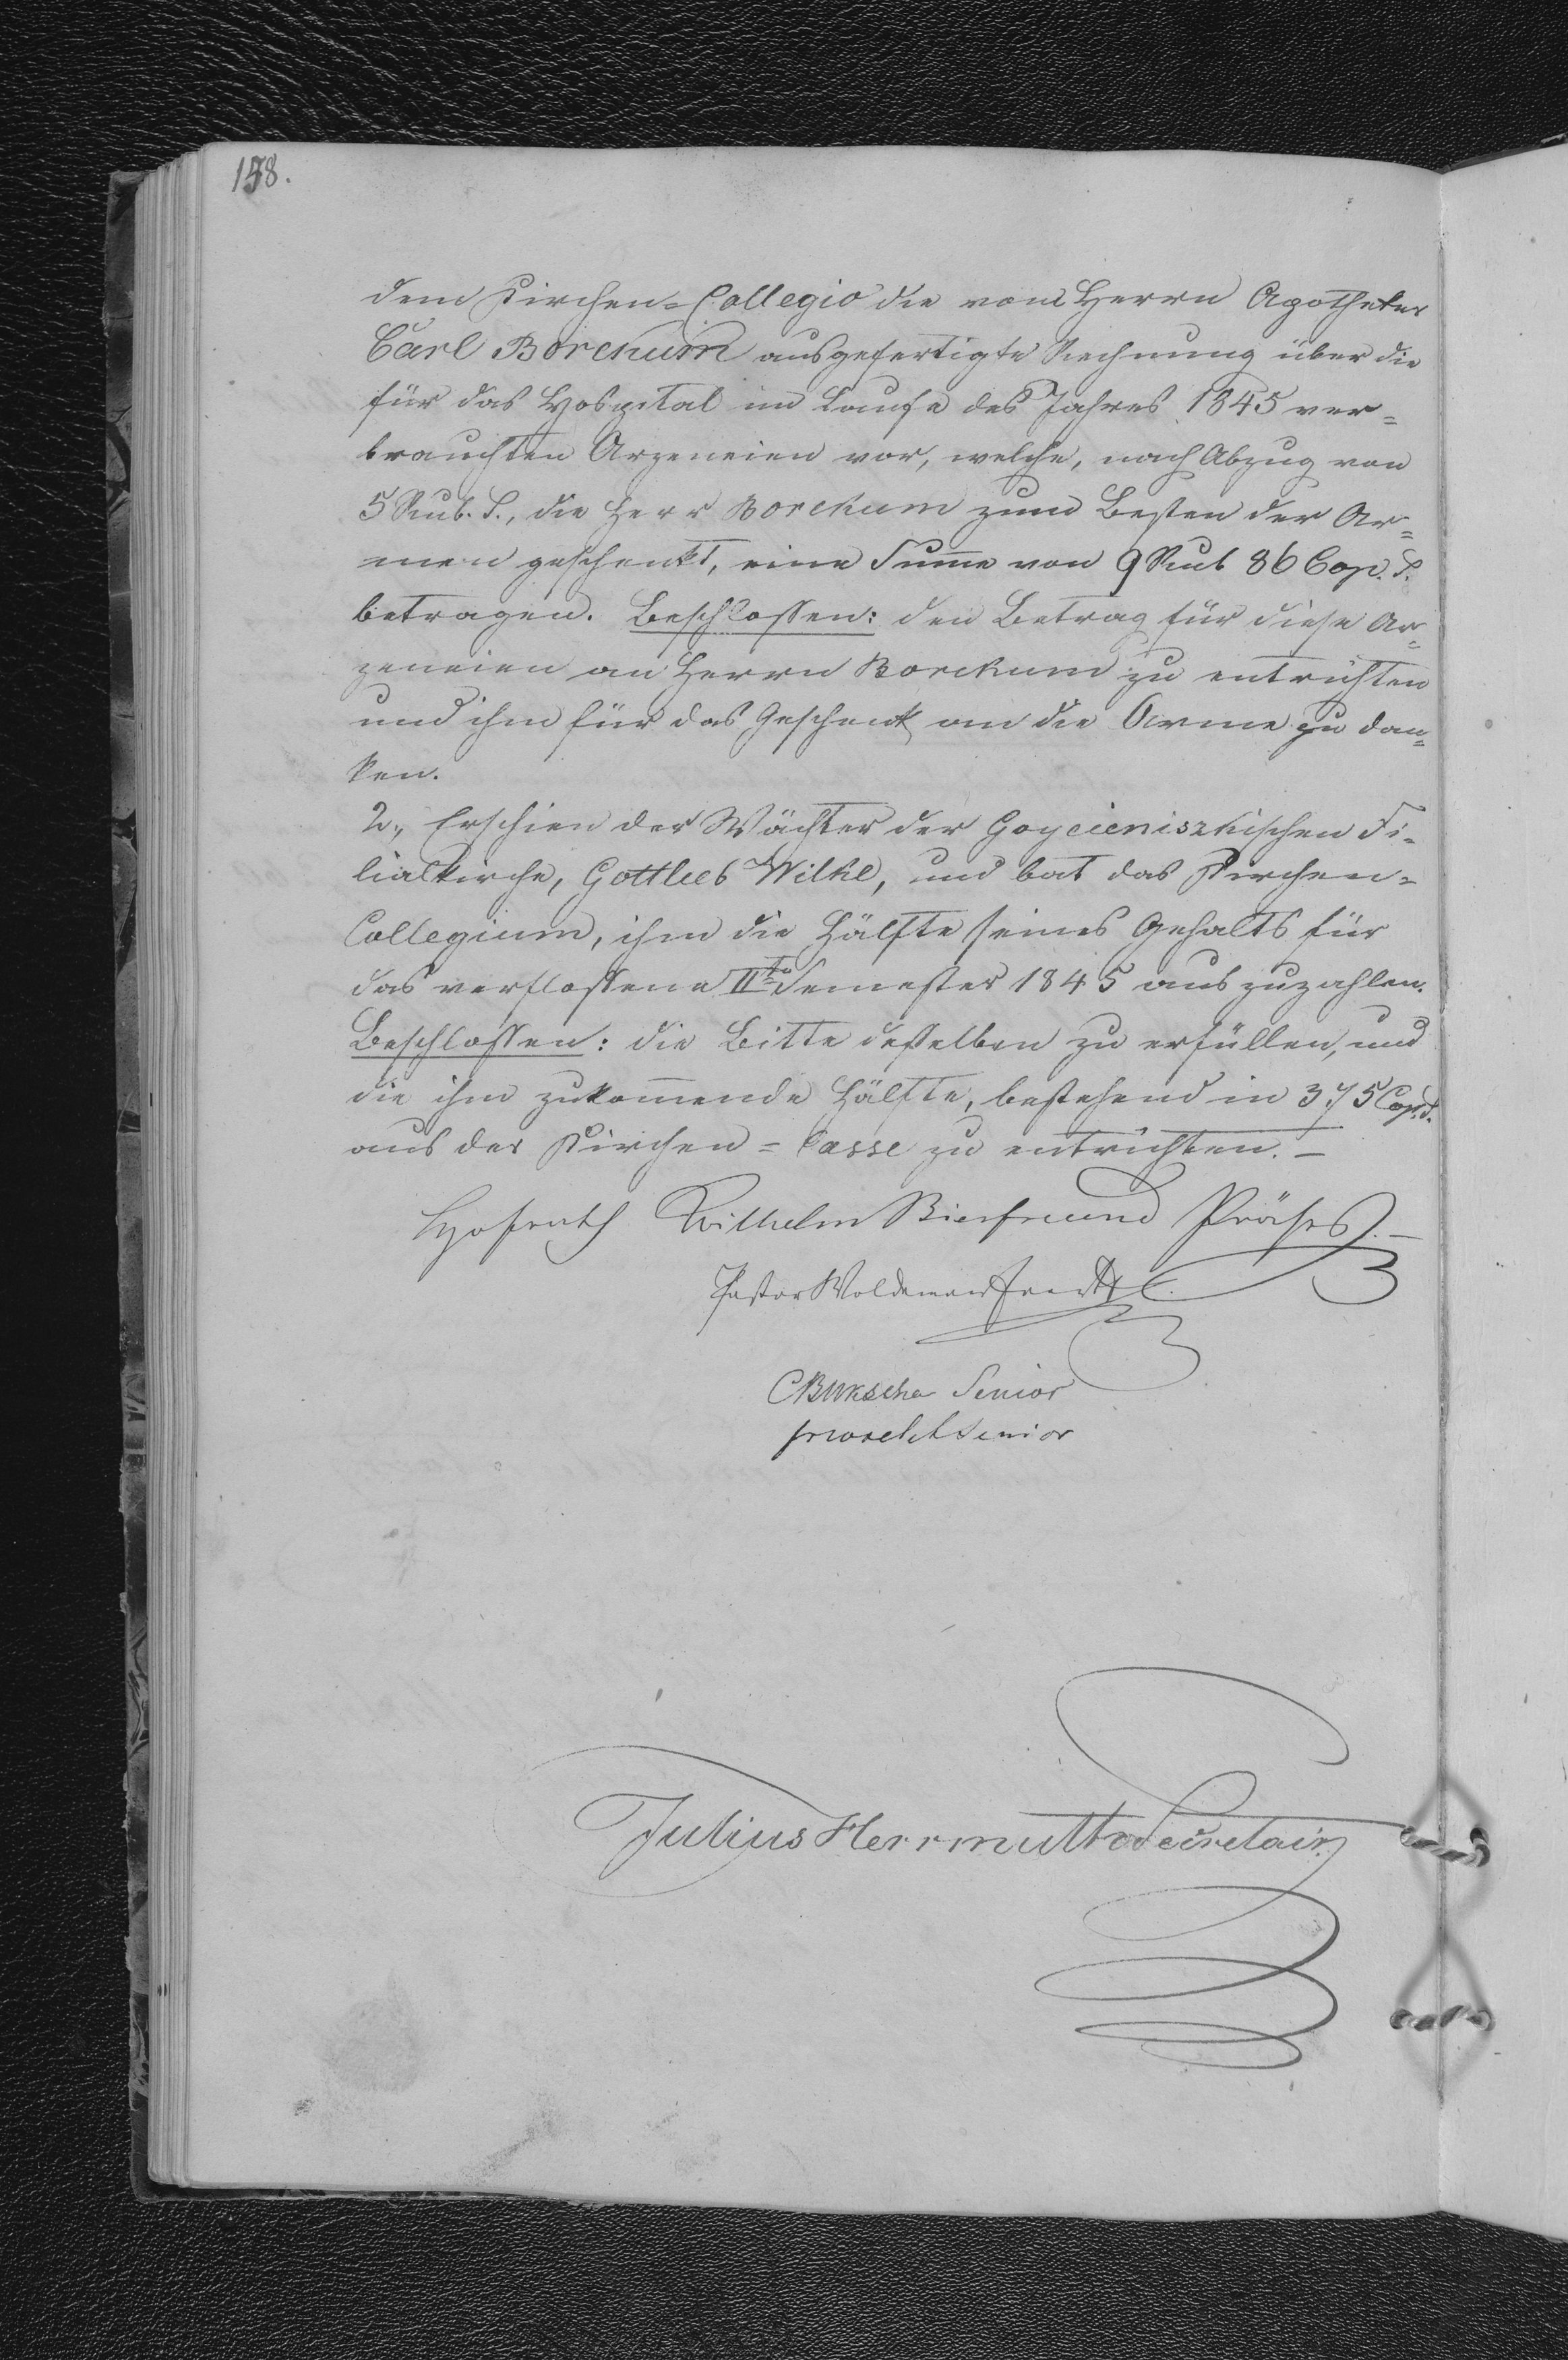 158.
dem Kirchen-Collegio die vom Herrn Apotheker
Carl Borchum ausgefertigte Rechnung über die
für das Hospital im Laufe des Jahres 1845 ver=
brauchten Arzeneien vor, welche, nach Abzug von
5 Rub. S., die Herr Borchum zum Besten der Ar=
men geschenkt, eine Sum̅e von 9 Rub 86 Cop. S.
betragen. Beschlossen: den Betrag für diese Ar=
zeneien an Herrn Borchum zu entrichten
und ihm für das Geschenk an die Arme zu dan=
ken.
2., Erschien der Wächter der Goycieniszkischen Fi-
lialkirche, Gottlieb Wilke, und bat das Kirchen-
Collegium, ihm die Hälfte seines Gehalts für
das verflossene IIte Semester 1845 auszuzahlen.
Beschlossen: die Bitte desselben zu erfüllen, und
die ihm zukom̅ende Hälfte, bestehend in 375 Cop. S.
aus der Kirchen=Casse zu entrichten. –
Hofrath Wilhelm Bierfreund Präses. –
Pastor Woldemar
CBukscha Senior
Senior
Julius Herrmutt Secretair